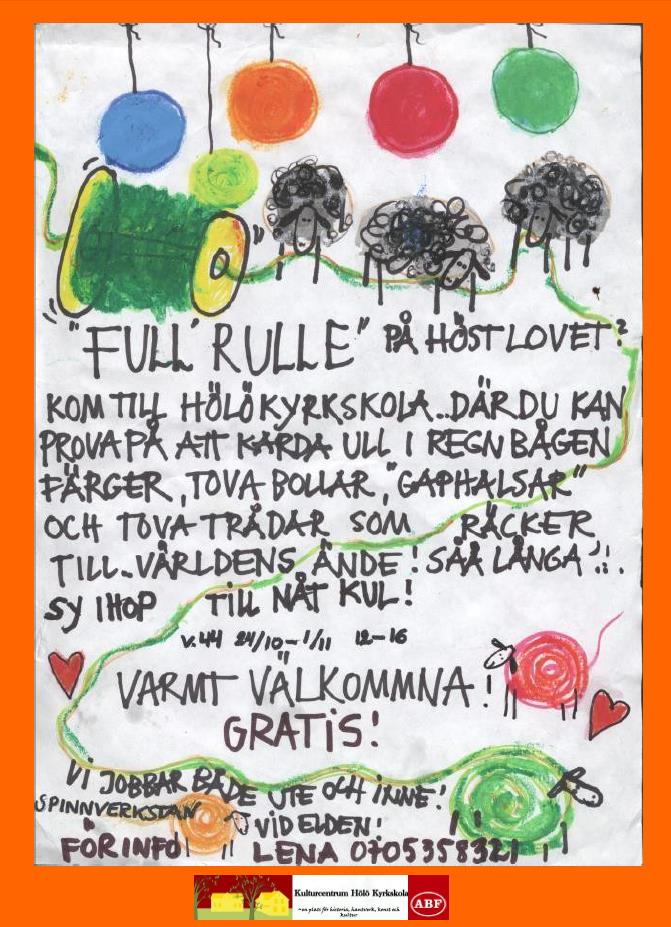 "FULL RULLE" PÅ HÖSTLOVET?
KOM TILL HÖLÖ KYRKSKOLA..DÄR DU KAN
PROVA PÅ ATT KARDA ULL I REGNBÅGEN
FÄRGER, TOVA BOLLAR, "GAPHALSAR"
OCH TOVA TRÅDAR SOM RÄCKER
TILL..VÄRLDENS ÄNDE! SÅÅ LÅNGA!!.
SY IHOP TILL NÅT KUL!
V.44 24/10-1/11 12-16
VARMT VÄLKOMMNA!
GRATIS!
VI JOBBAR BÅDE UTE OCH INNE!
SPINNVERKSTAN VID ELDEN!
FÖR INFO LENA 0705358321
Kulturcentrum Hölö Kyrkskola
~en plats för historia, hantverk, konst och
kultur
ABF